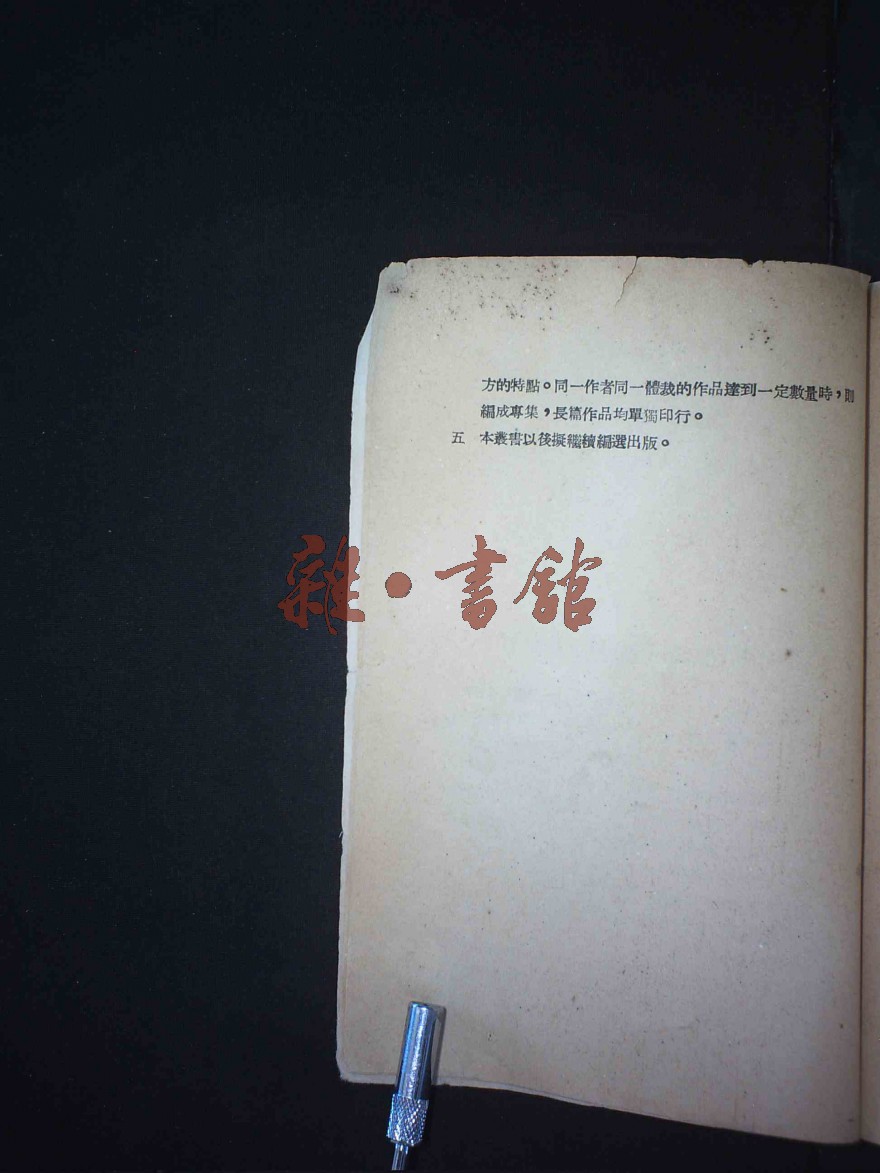 方的特點。同一作者同一體裁的作品達到一定數量時，則
編成專集，長篇作品均單獨印行。
五　本叢書以後擬繼續編選出版。
雜·書館